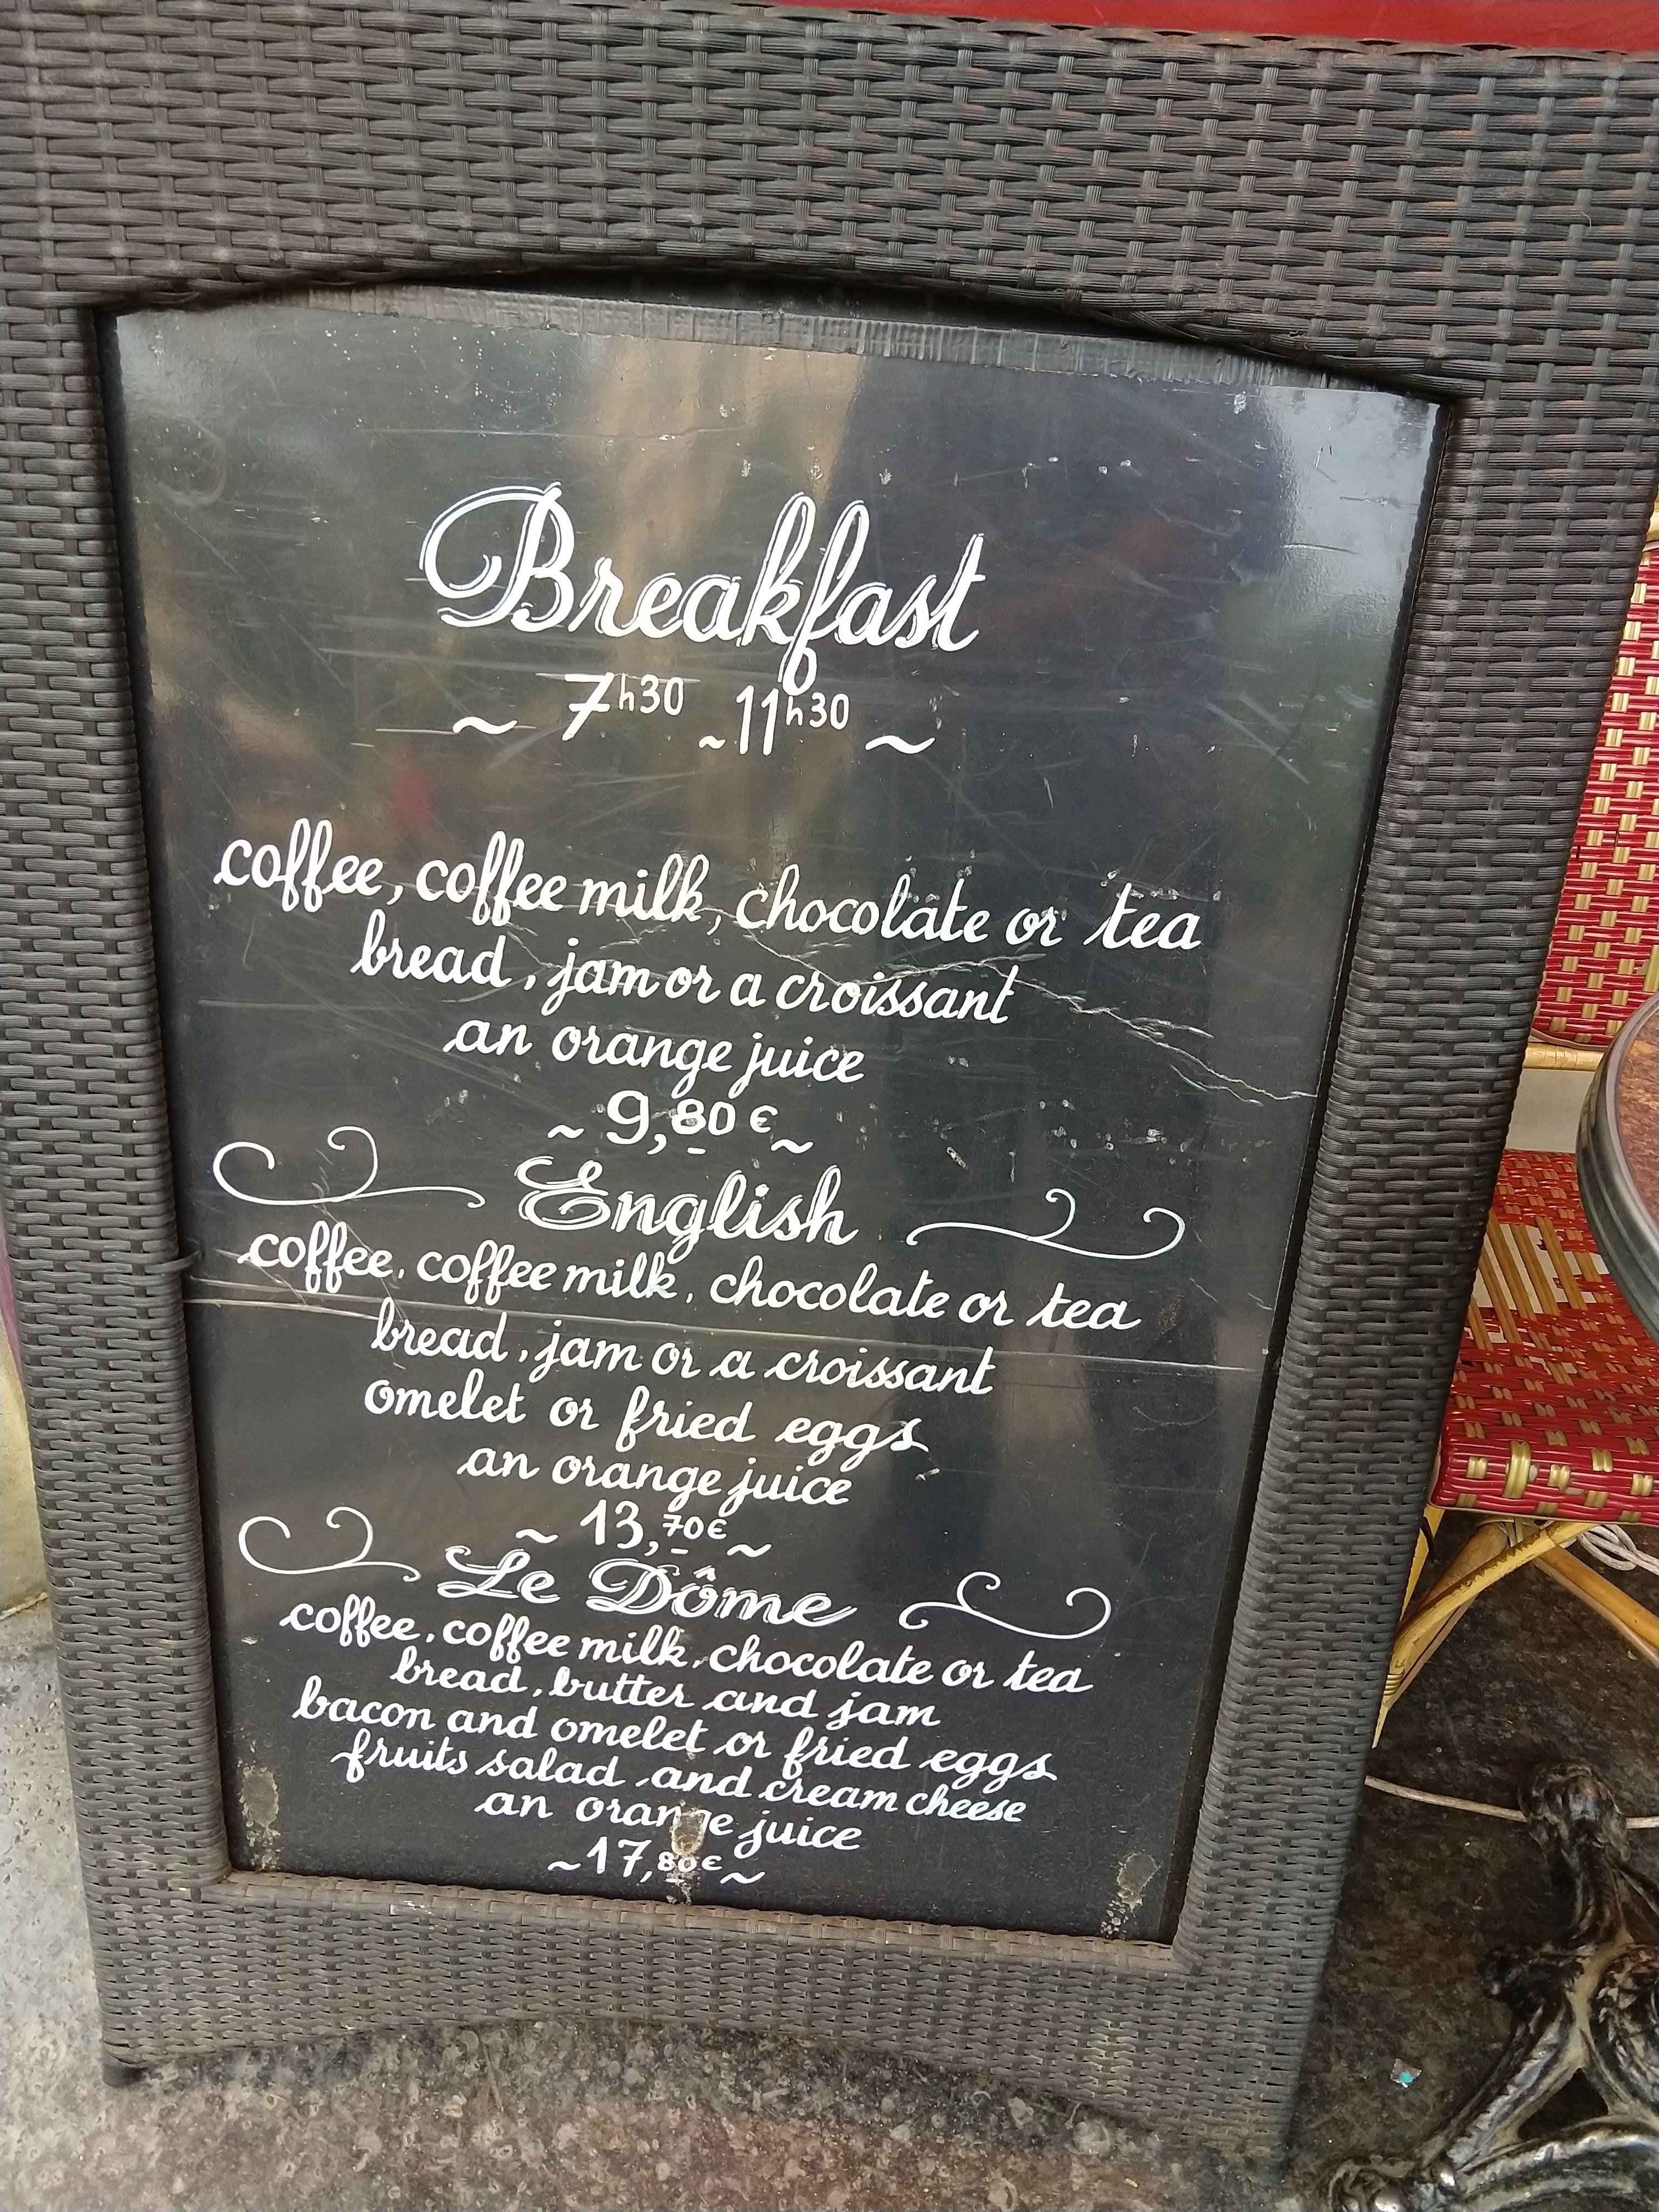 Breakfast
~ 7h30 ~ 11h30 ~
coffee, coffee milk, chocolate or tea
bread, jam or a croissant
an orange juice
~ 9,80 € ~
English
coffee, coffee milk, chocolate or tea
bread, jam or a croissant
omelet or fried eggs
an orange juice
~ 13,70 € ~
Le Dôme
coffee, coffee milk, chocolate or tea
bread, butter and jam
bacon and omelet or fried eggs
fruits salad and cream cheese
an orange juice
~ 17,80 € ~